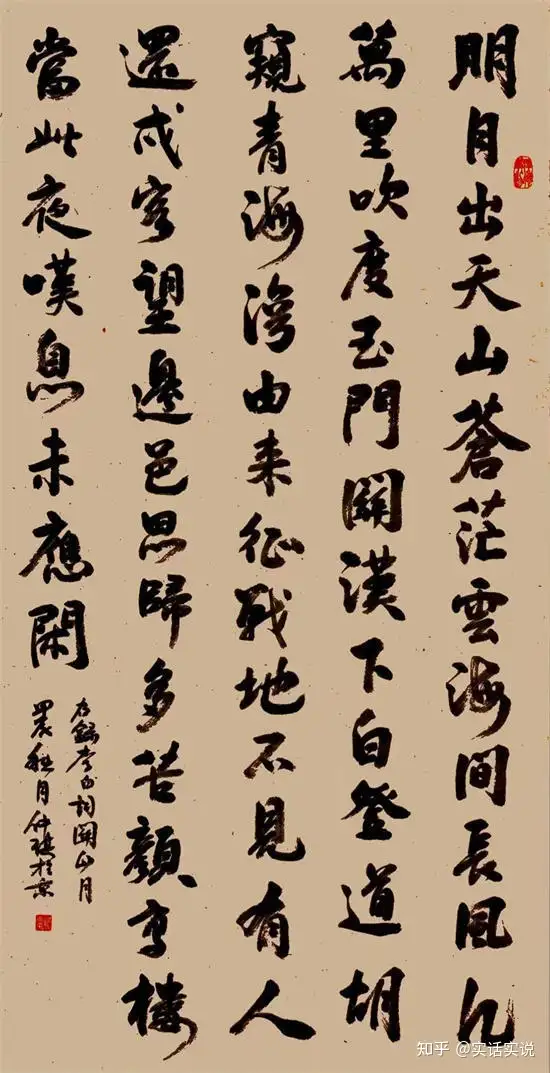 明月出天山蒼茫雲海間長風几
萬里吹度玉門關漢下白登道胡
窺青海灣由来征戰地不見有人
還戍客望邊邑思歸多苦顏高樓
當此夜嘆息未應閑
錄李白詩關山月
月仲琪於京
知乎 @实话实说